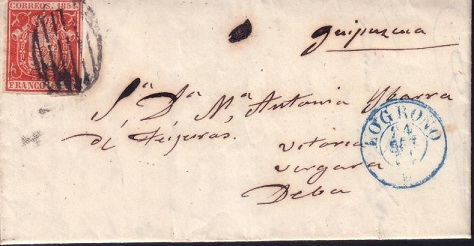 CORREOS. 185
FRANCO
Guipuzcoa
S.ª D.ª M.ª Antonia Ybarra
de
Vitoria
Vergara
Deba
LOGROÑO
24
SET